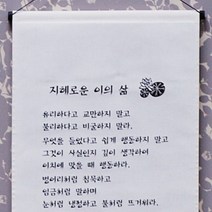 지혜로운 이의 삶
유리하다고 교만하지 말고
불리하다고 비굴하지 말라.
무엇을 들었다고 쉽게 행동하지 말고
그것이 사실인지 깊이 생각하여
이치에 맞을 때 행동하라.
벙어리처럼 침묵하고
임금처럼 말하며
눈처럼 냉철하고 불처럼 뜨거워라.